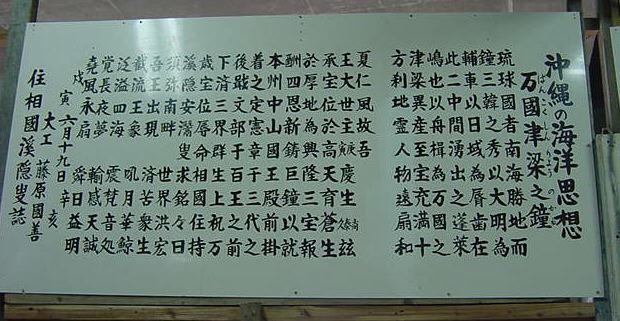 沖縄の海洋思想
万國津梁之鐘
ばんこくしんりょうのかね
琉球國者南海勝地而
鐘三韓之秀以大明為
輔車以日域為脣歯在
此二中間湧出之蓬莱
嶋也以舟楫為万國之
津梁異産至宝充満十
方利地霊人物遠扇和
夏仁風故吾
王大世主庚寅慶生尚泰久玆
承宝位於高天育蒼生
於厚地為興隆三宝報
酬四恩新鋳巨鐘以就
本州中山國王殿前掛
着之定憲章于三代之
後戢文部于百王之前
下済三界群生上祝万
歳宝位辱命相國住持
溪隠安潜叟求銘々曰
須弥南畔 世界洪宏
吾王出現 済苦衆生
截流王象 吼月華鯨
泛溢四海 震梵音処
覚長夜夢 輸感天誠
堯風永扇 舜日益明
戊寅六月十九日辛亥
大工 藤原國善
住相國溪隠叟誌